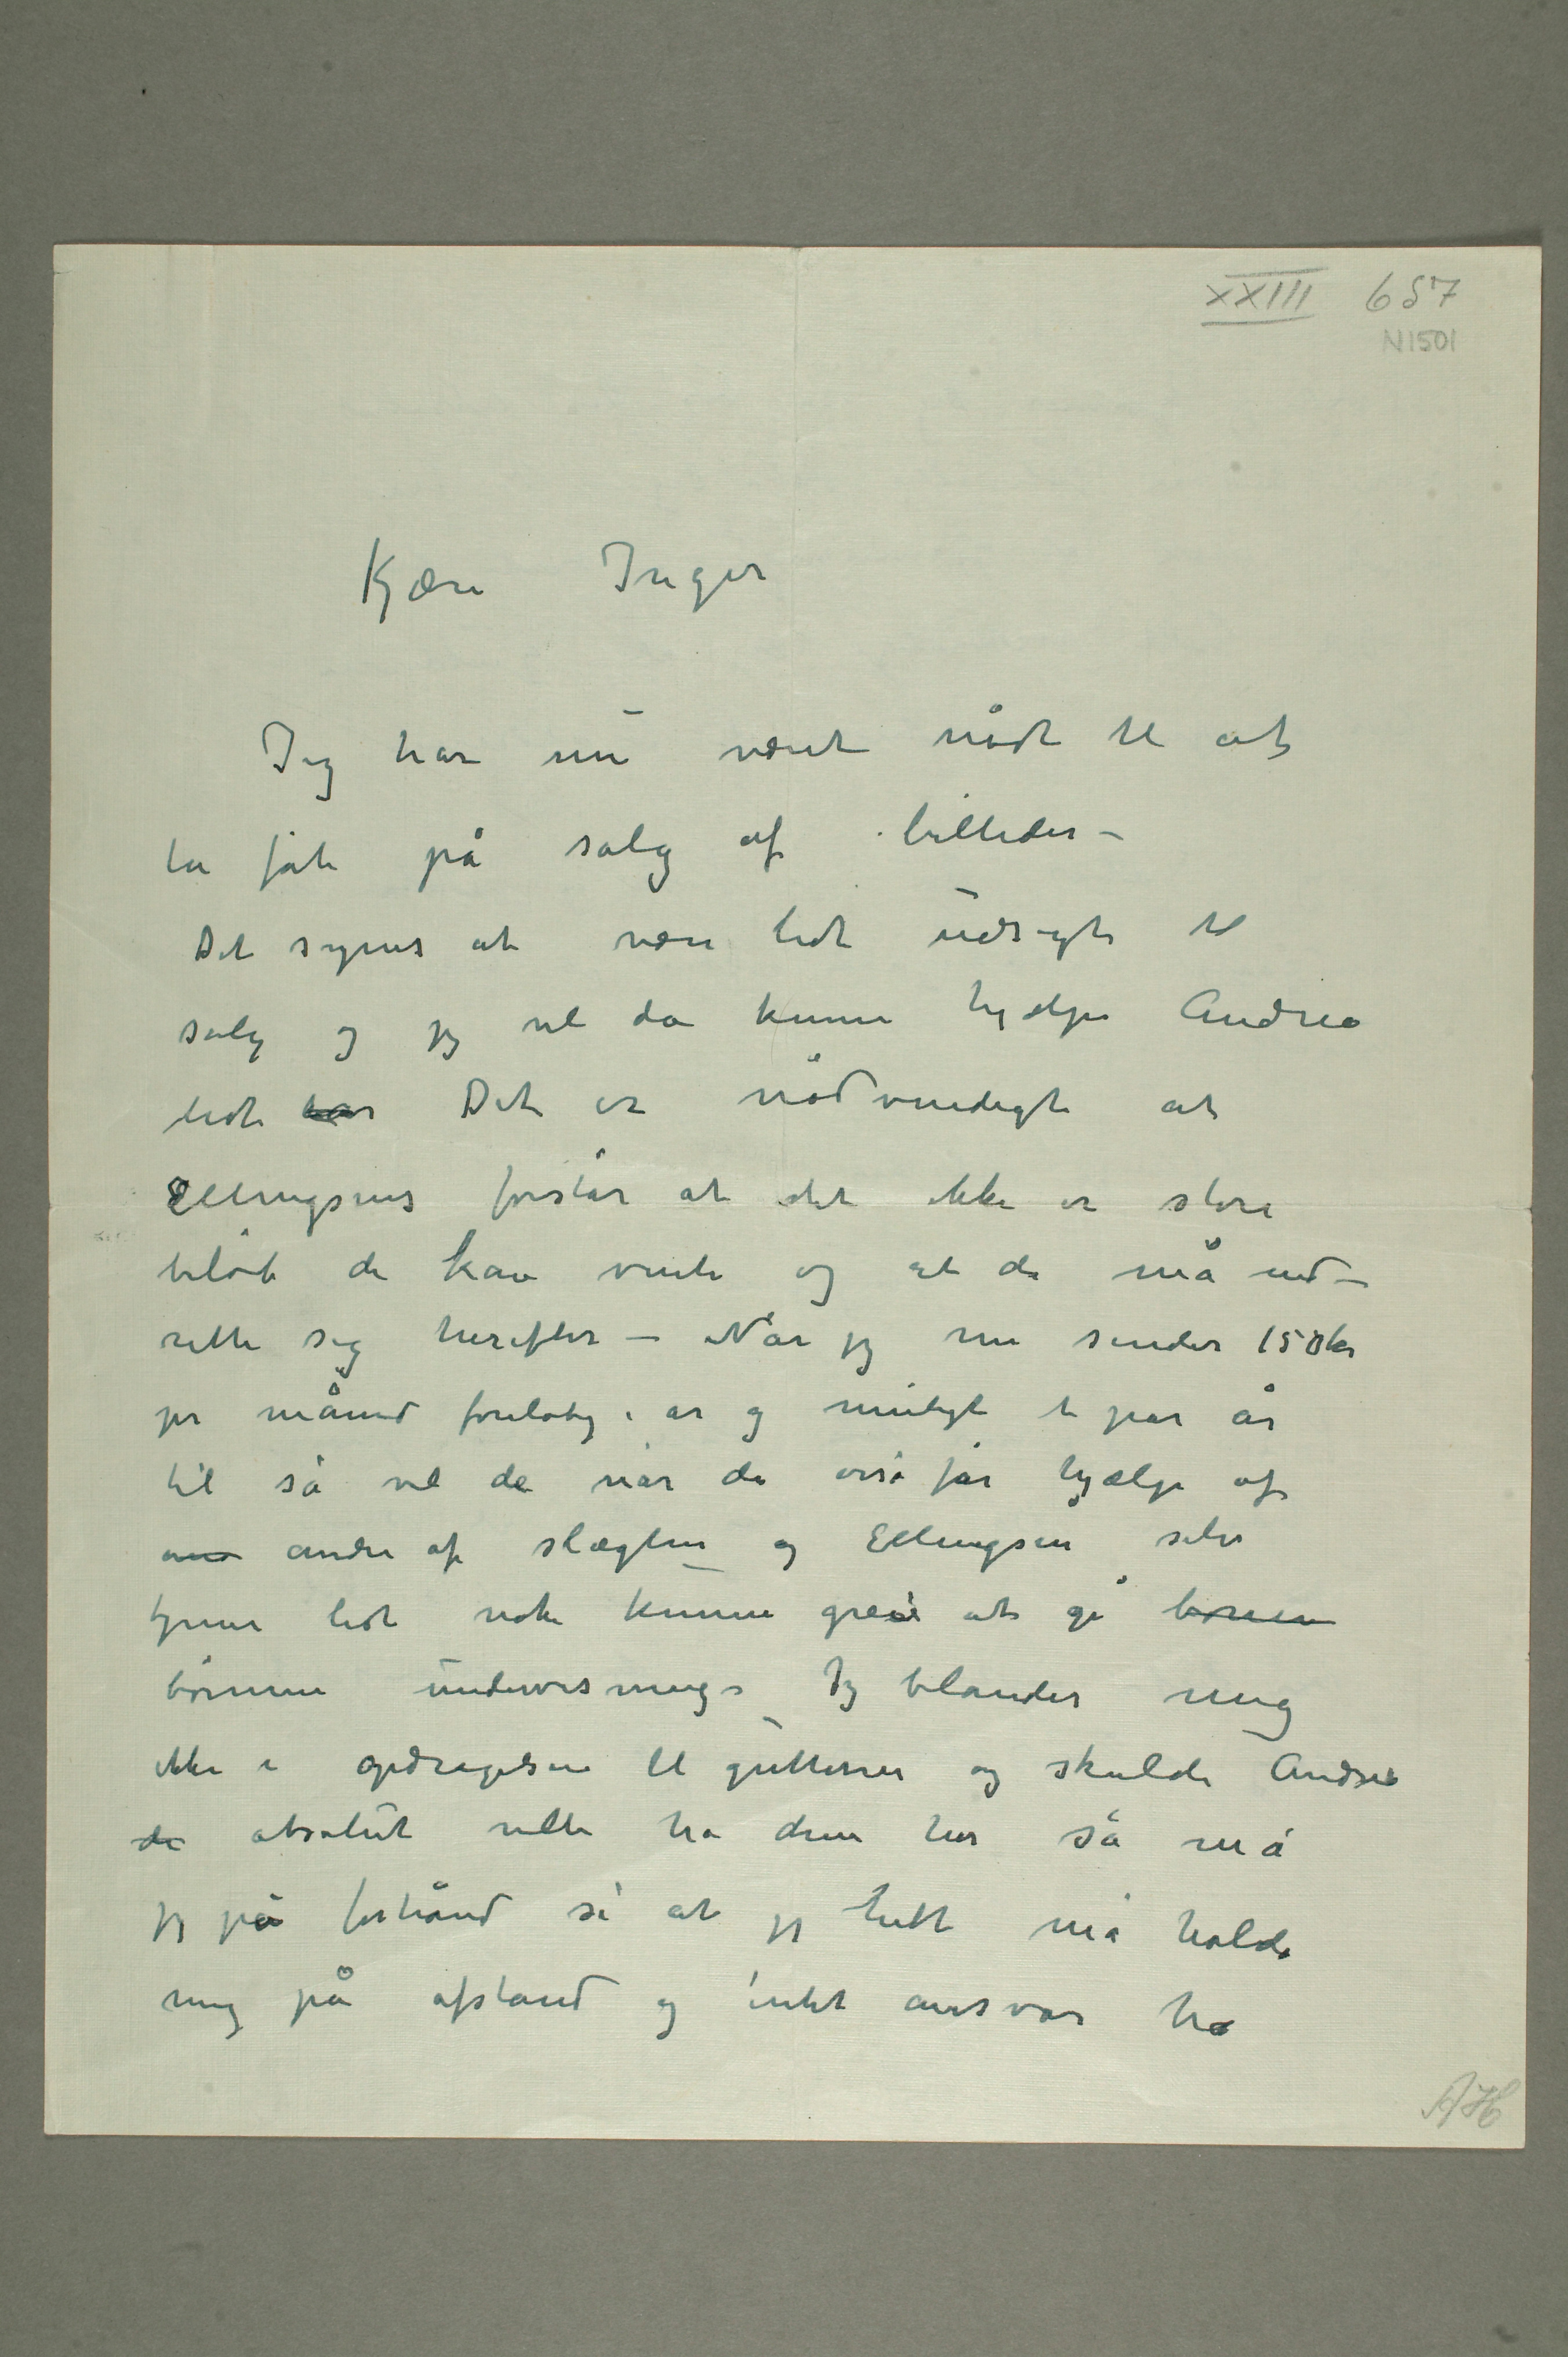 XXIII 657
N1501
Kjære Inger
Jeg har nu været nødt til at
ta fat på salg af billeder –
Det synes at være lidt udsigt til
salg og jeg vil da kunne hjælpe Andrea
lidt har Det er nødvendigt at
Ellingsens forstår at det ikke er store
beløb de kan vente og at de må ind-
rette sig herefter – Når jeg nu sender 150 kr
pr måned foreløbig i år og muligt et par år
til så vil de når de også får hjælp af
ann andre af slægten og Ellingsen selv
tjener lidt nok kunne greie at gi børnen
børnene undervisning – Jeg blander mig
ikke i opdragelsen til gutterne og skulde Andrea
de absolut ville ha dem her så må
jeg på forhånd si at jeg helt må holde
mig på afstand og intet ansvar ha
AH